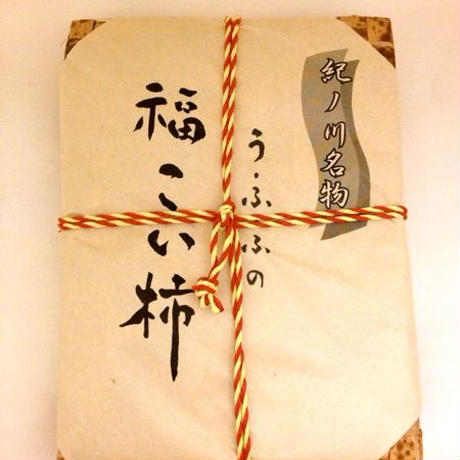 紀ノ川名物
う・ふふの
福こい柿